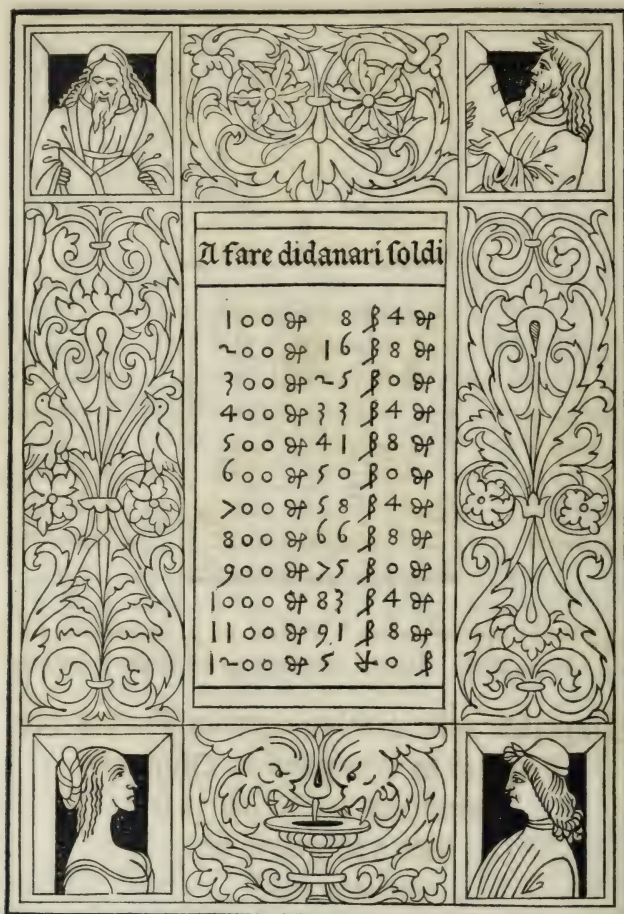 A fare didanari soldi
100 ₰ 8 ß 4 ₰
200 ₰ 16 ß 8 ₰
300 ₰ 25 ß 0 ₰
400 ₰ 33 ß 4 ₰
500 ₰ 41 ß 8 ₰
600 ₰ 50 ß 0 ₰
700 ₰ 58 ß 4 ₰
800 ₰ 66 ß 8 ₰
900 ₰ 75 ß 0 ₰
1000 ₰ 83 ß 4 ₰
1100 ₰ 91 ß 8 ₰
1200 ₰ 5 ℔ 0 ß